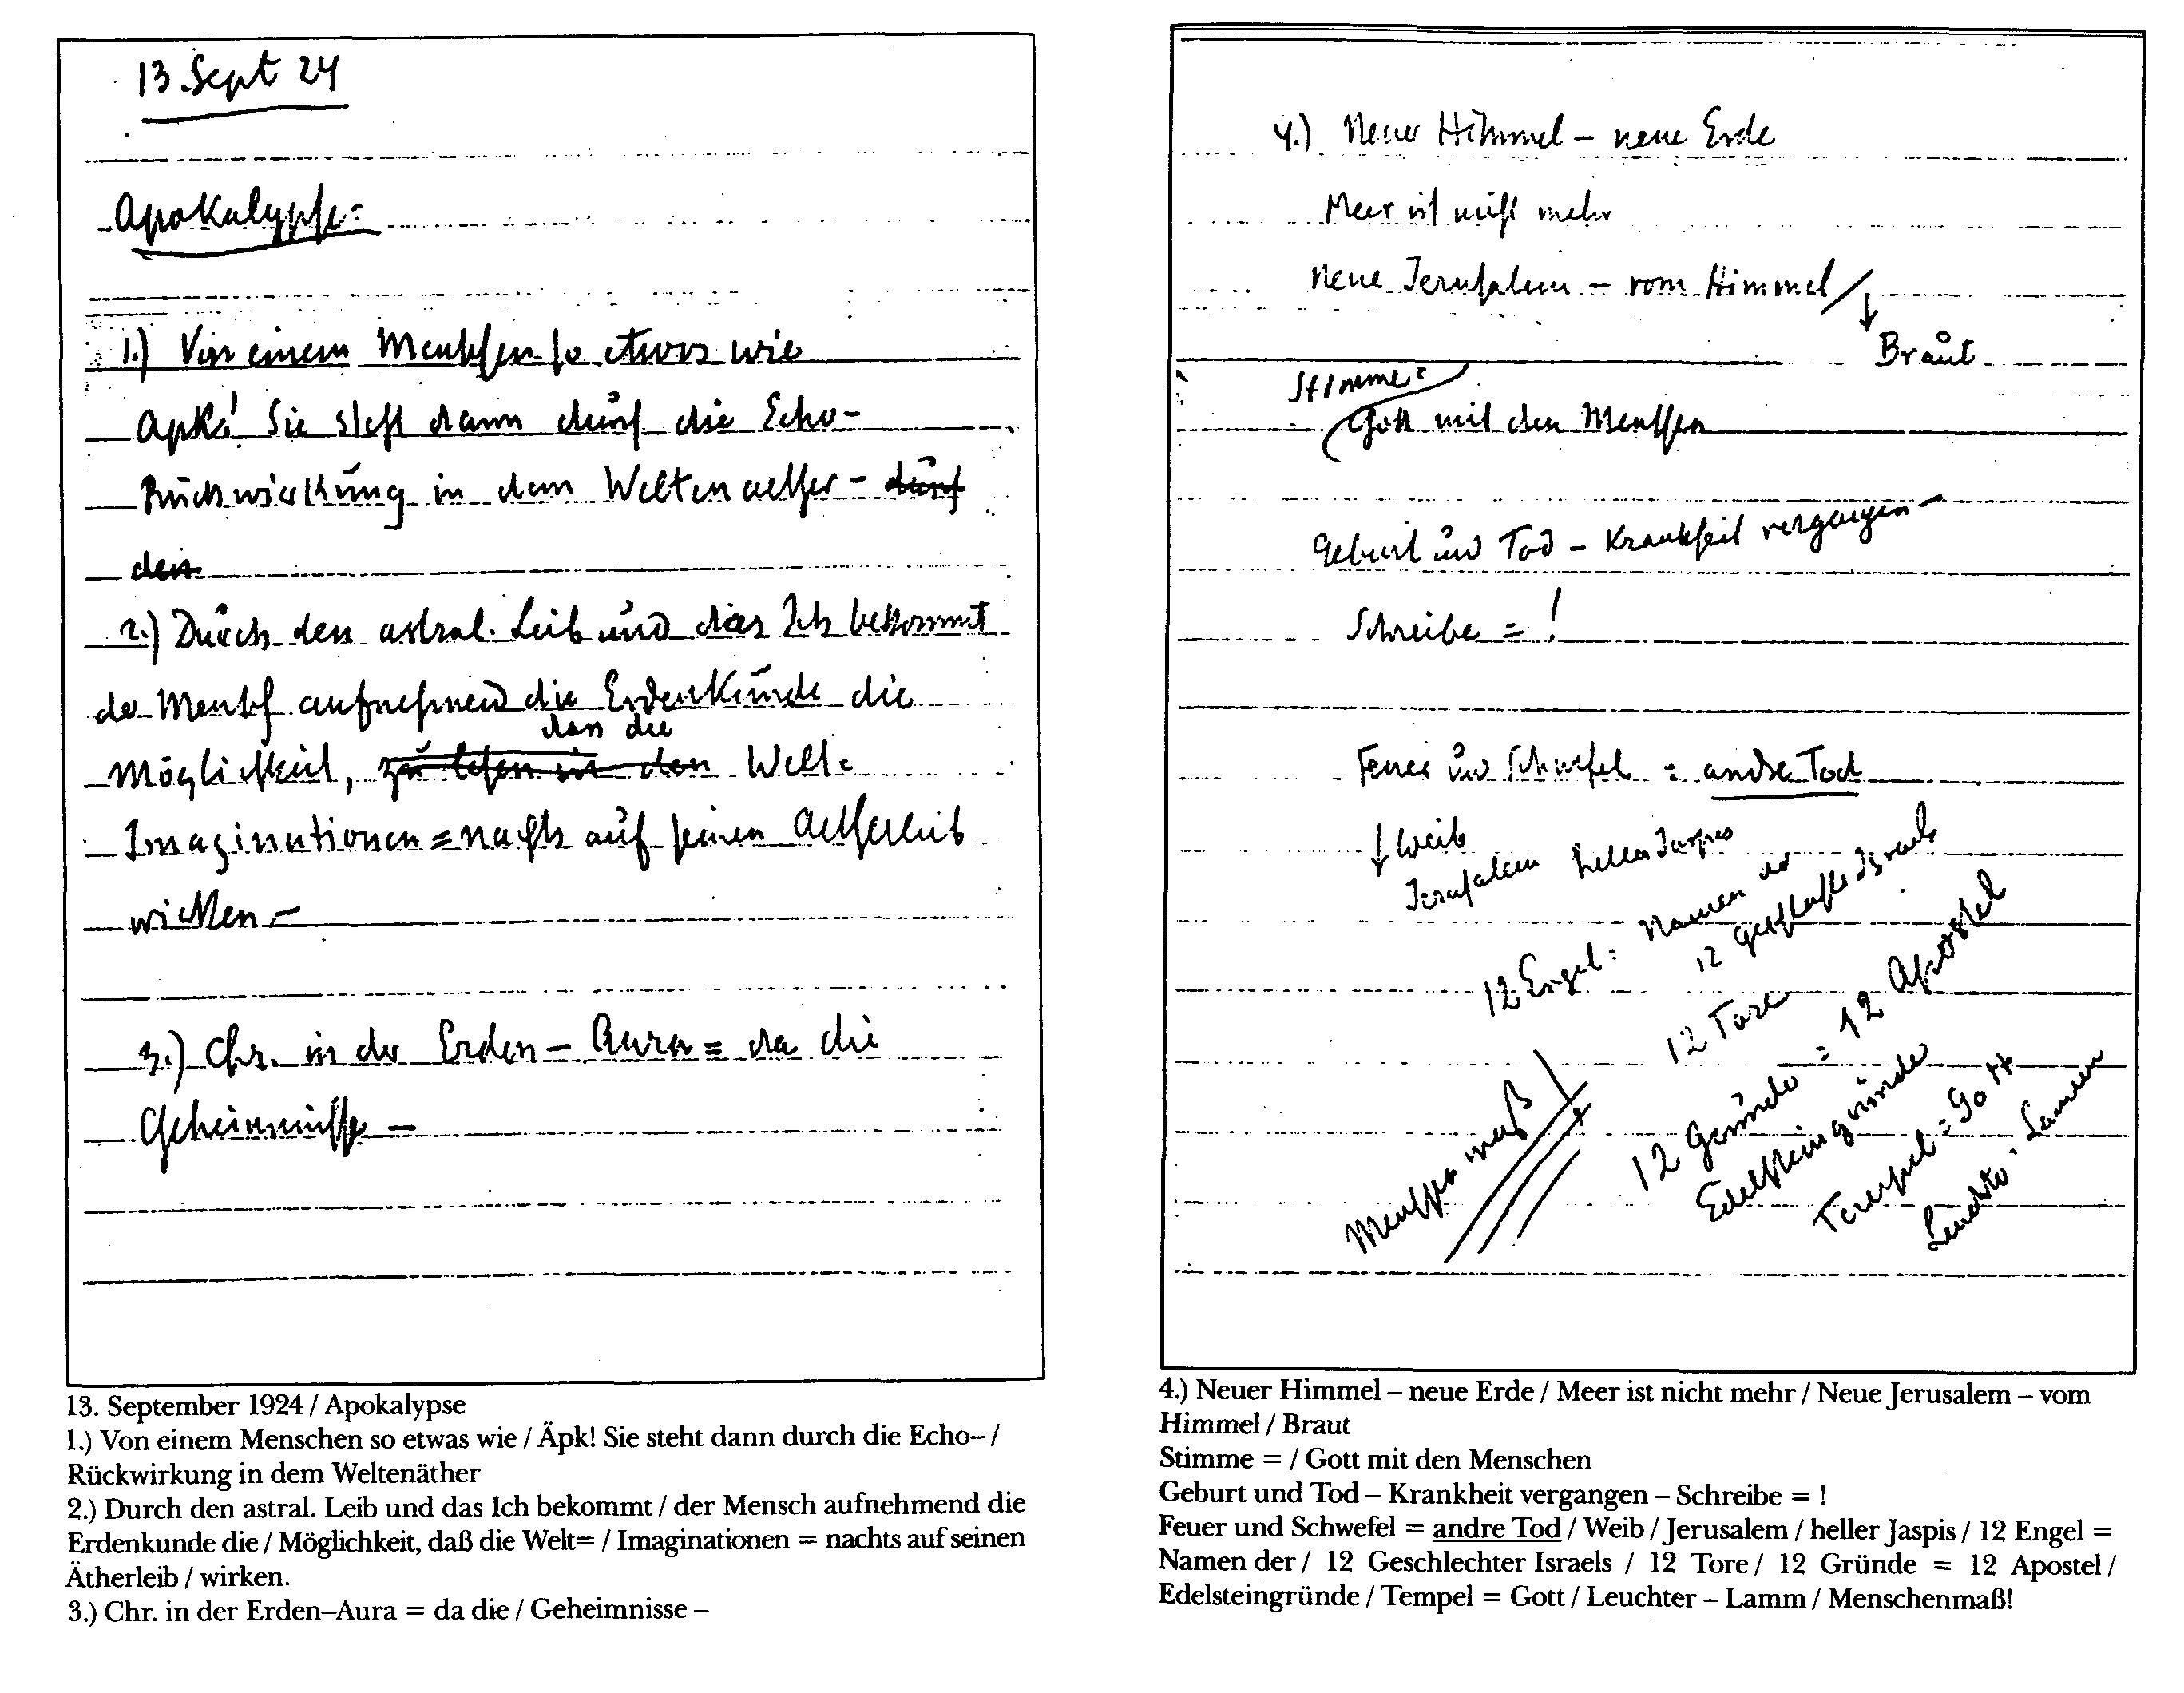 13. Sept 24
Apokalypse:
1.) Von einem Menschen so etwas wie
Apk! Sie steht dann durch die Echo-
Rückwirkung in dem Weltenaether - durch
den
2.) Durch den astral. Leib und das Ich bekommt
der Mensch aufnehmend die Erdenkunde die
dass die
Möglichkeit, zu lesen in den Welt=
Imaginationen = nachts auf seinen Aetherleib
wirken. -
3.) Chr. in der Erden - Aura = da die
Geheimnisse -
13. September 1924 / Apokalypse
1.) Von einem Menschen so etwas wie / Äpk! Sie steht dann durch die Echo– /
Rückwirkung in dem Weltenäther
2.) Durch den astral. Leib und das Ich bekommt / der Mensch aufnehmend die
Erdenkunde die / Möglichkeit, daß die Welt= / Imaginationen = nachts auf seinen
Ätherleib / wirken.
3.) Chr. in der Erden–Aura = da die / Geheimnisse –
4.) Neuer Himmel – neue Erde
Meer ist nicht mehr
Neue Jerusalem – vom Himmel /
Braut
Stimme =
Gott mit den Menschen
Geburt und Tod – Krankheit vergangen –
Schreibe = !
Feuer und Schwefel = andre Tod
Weib
Jerusalem heller Jaspis
12 Engel = Namen der
12 Geschlechter Israels
12 Tore
12 Gründe = 12 Apostel
Edelsteingründe
Tempel = Gott
Leuchter - Lamm
Menschenmaß!
4.) Neuer Himmel – neue Erde / Meer ist nicht mehr / Neue Jerusalem – vom
Himmel / Braut
Stimme = / Gott mit den Menschen
Geburt und Tod – Krankheit vergangen – Schreibe = !
Feuer und Schwefel = andre Tod / Weib / Jerusalem / heller Jaspis / 12 Engel =
Namen der / 12 Geschlechter Israels / 12 Tore / 12 Gründe = 12 Apostel /
Edelsteingründe / Tempel = Gott / Leuchter – Lamm / Menschenmaß!